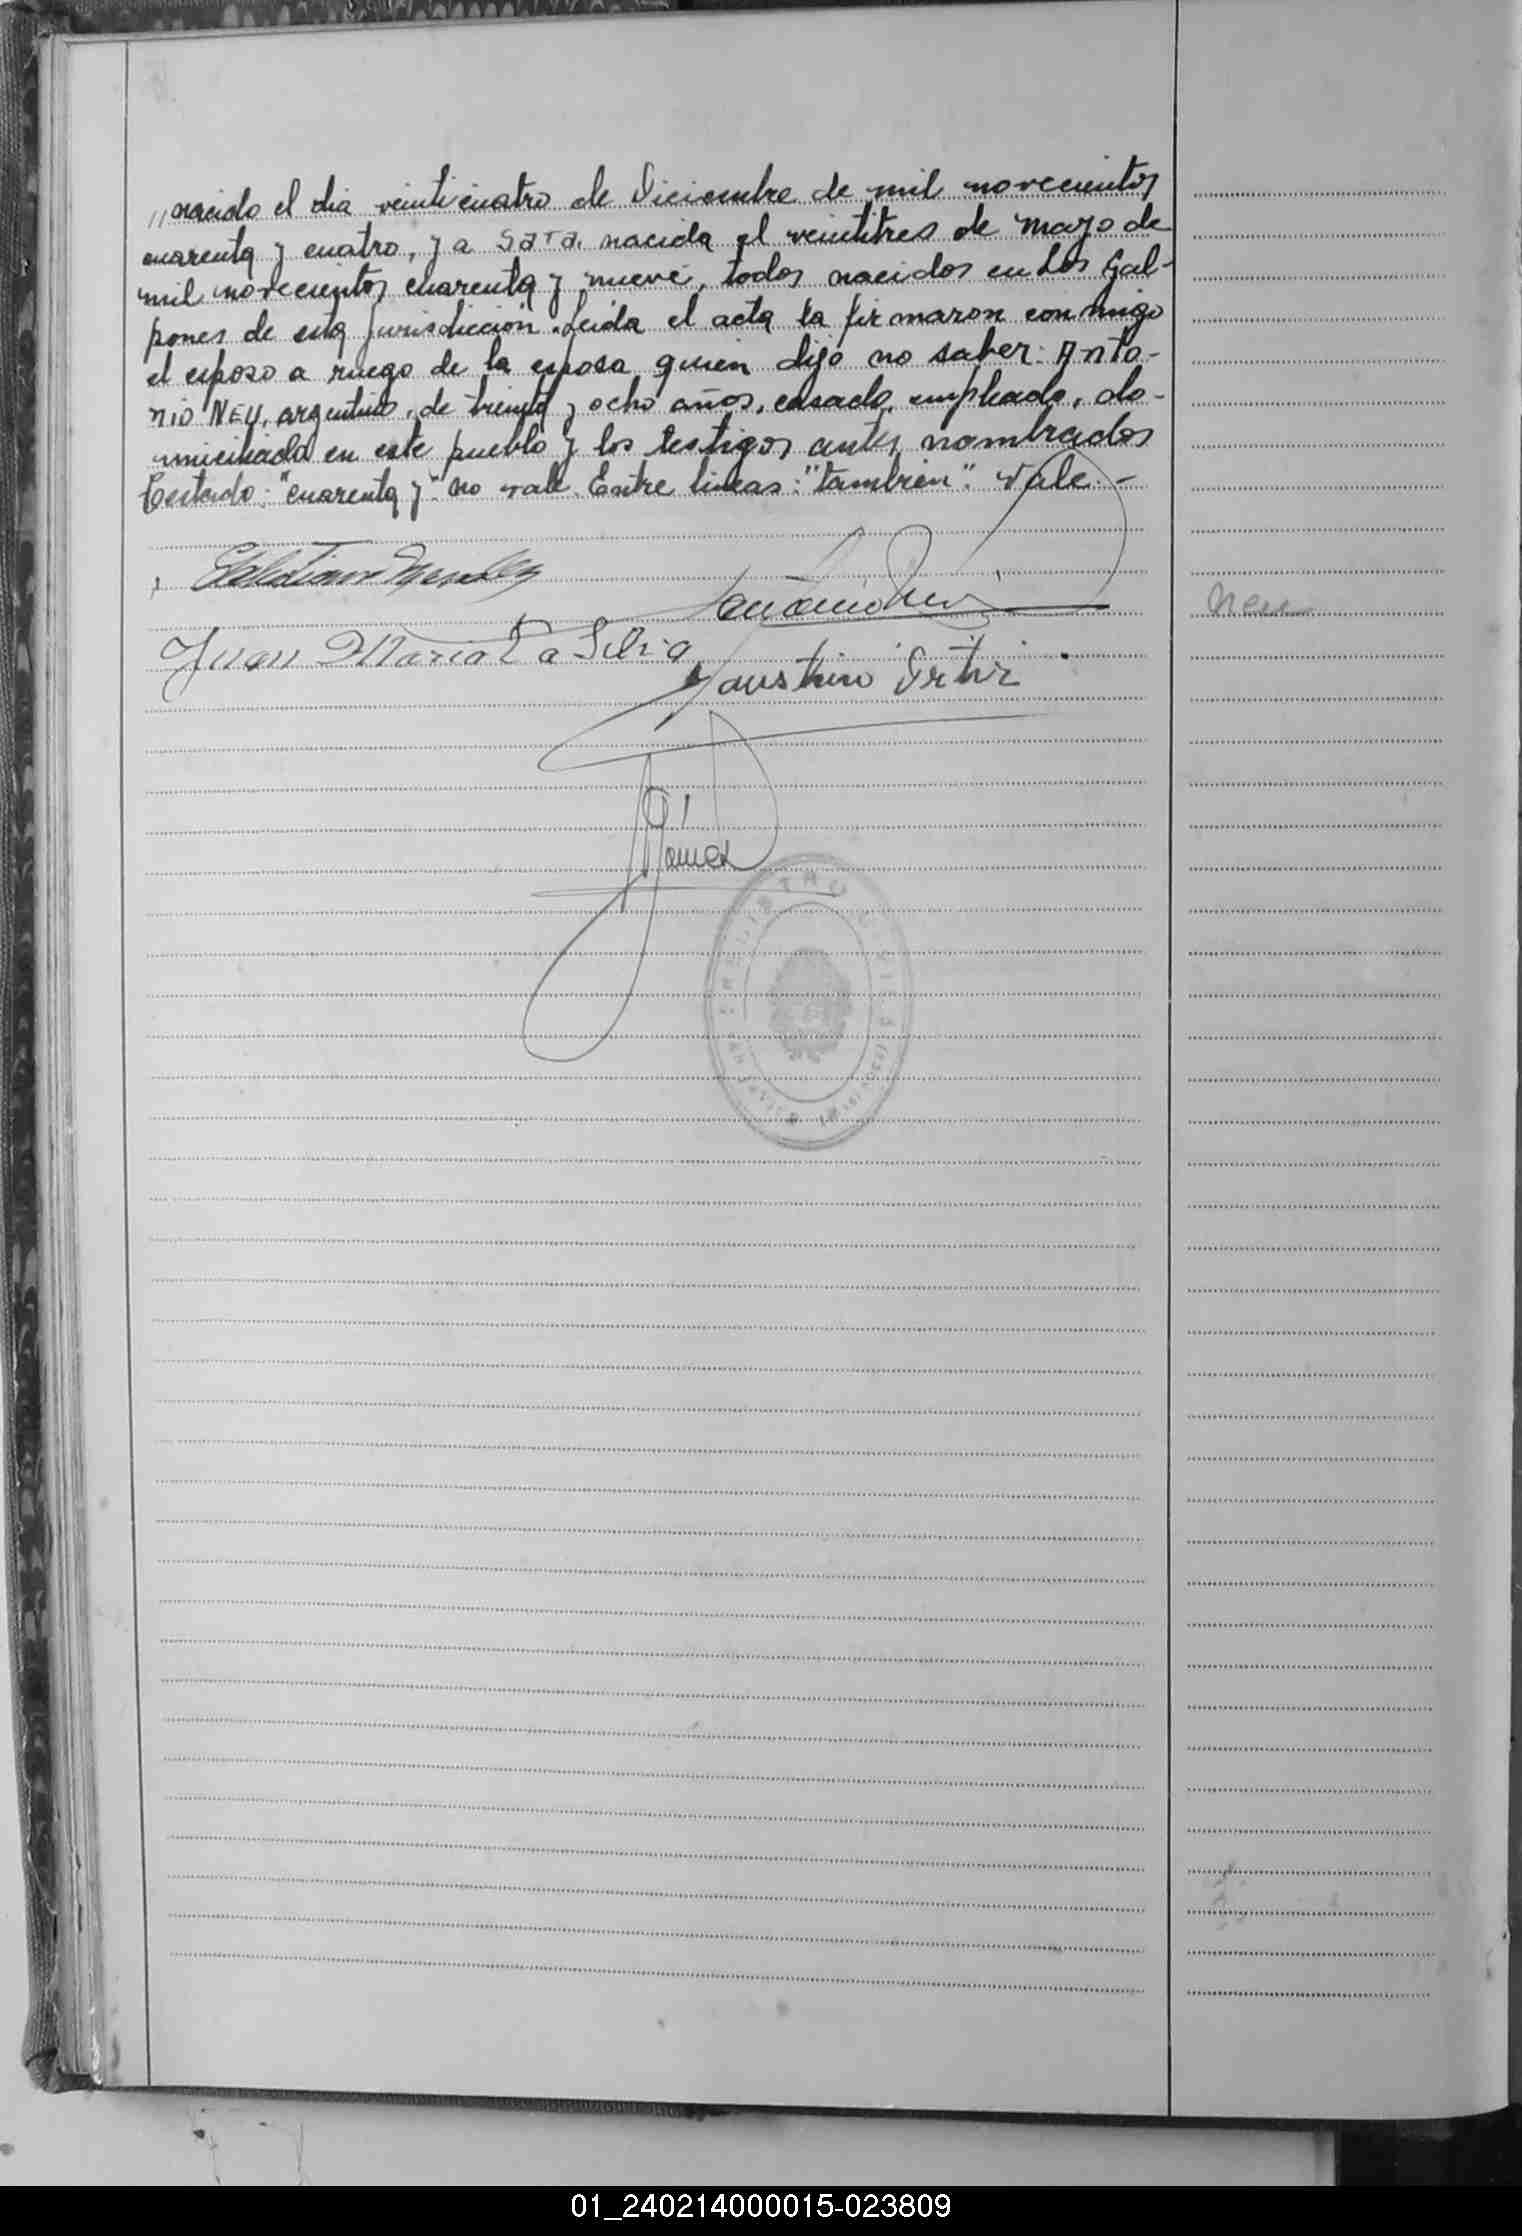 // nacido el dia veinticuatro de Diciembre de mil novecientos
cuarenta y cuatro, y a Sara, nacida el veintitres de Mayo de
mil novecientos cuarenta y nueve, todos nacidos en Los Gal-
pones de esta Jurisdicción. Leida el acta la firmaron conmigo
el esposo a ruego de la esposa quien dijo no saber: Anto-
nio Neu, argentino, de treinta y ocho años, casado, empleado, do-
miciliado en este pueblo y los testigos antes nombrados
Testado: "cuarenta y". no vale. Entre lineas: "también". Vale. -
Antonio Neu
Neu
Juan Maria La Silvia
Faustino Ortiz
REGISTRO CIVIL
01_240214000015-023809